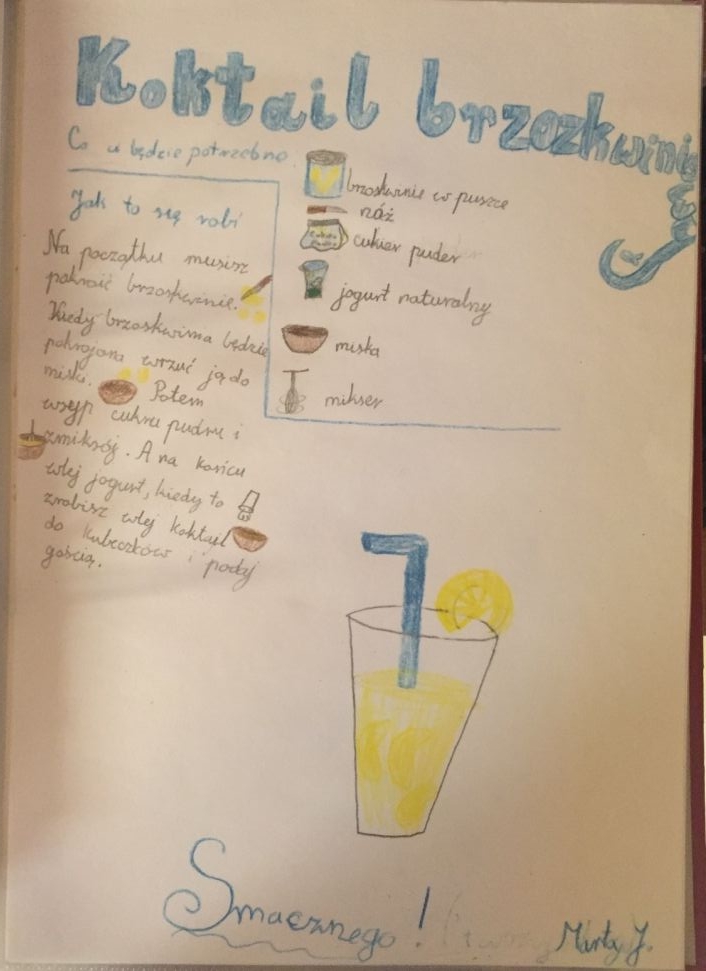 Koktail brzozkwiniowy
Co ci będzie potrzebne
brzoskwinie w puszce
nóż
Cukier
Puder
cukier puder
jogurt naturalny
miska
mikser
Jak to się robi
Na początku musisz
pokroić brzoskwinie.
Kiedy brzoskwinia będzie
pokrojona wrzuć ją do
miski. Potem
wsyp cukru pudru i
zmiksój. A na końcu
wlej jogurt, kiedy to
zrobisz wlej koktajl
do kubeczków i podaj
gością.
Smacznego!
Marty J.